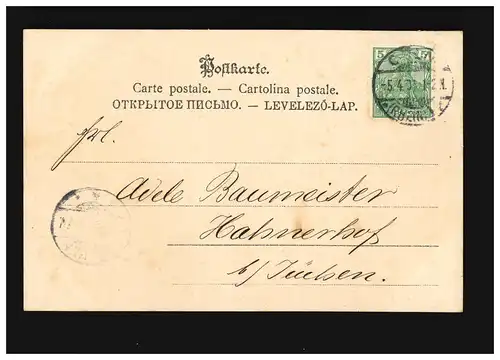 Postkarte.
Carte postale. — Cartolina postale.
ОТКРЫТОЕ ПИСЬМО. — LEVELEZŐ-LAP.
5 5
Frl.
Adele Baumeister
Hahnerhof
b/ Jüchen.